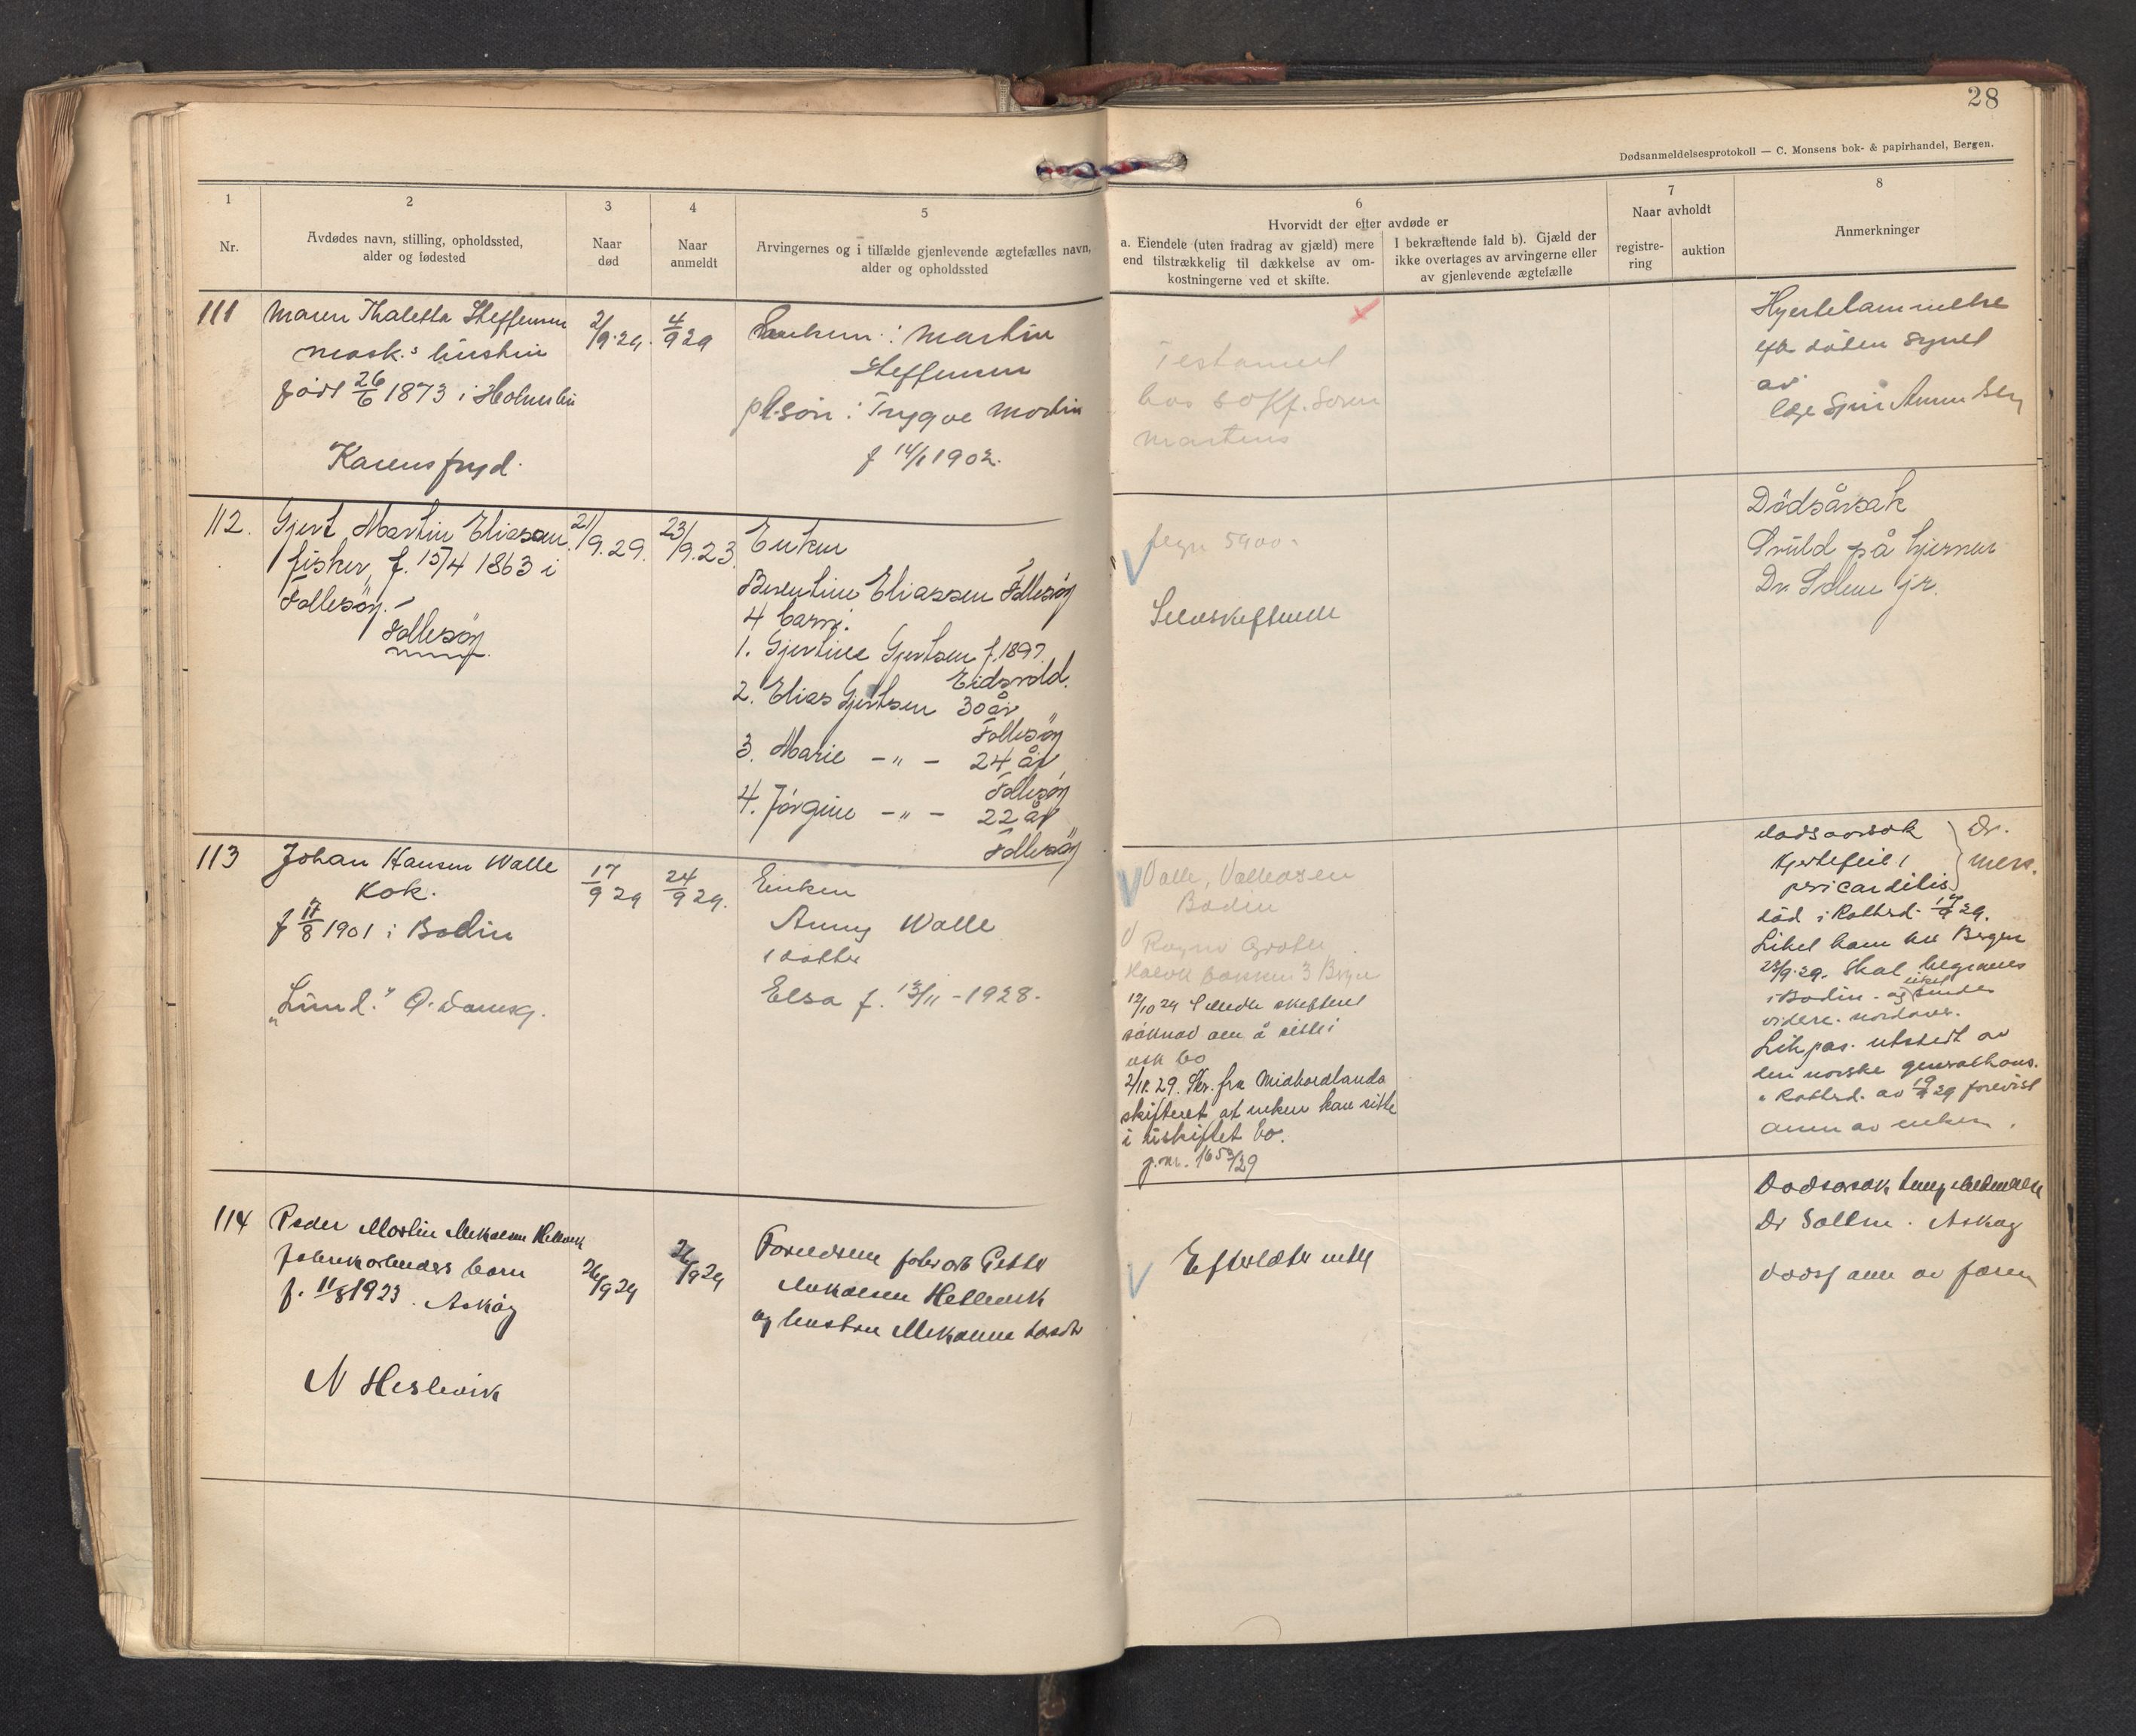 28
Dødsanmeldelsesprotokoll — C. Monsens bok- & papirhandel, Bergen.
1
Nr.
2
Avdødes navn, stilling, opholdssted,
alder og fødested
3
Naar
død
4
Naar
anmeldt
5
Arvingernes og i tilfælde gjenlevende ægtefælles navn,
alder og opholdssted
6
Hvorvidt der efter avdøde er
a. Eiendele (uten fradrag av gjæld) mere
end tilstrækkelig til dækkelse av om-
kostningerne ved et skifte.
I bekræftende fald b). Gjæld der
ikke overtages av arvingerne eller
av gjenlevende ægtefælle
7
Naar avholdt
registre-
ring
auktion
8
Anmerkninger
111
Maren Thaletta Steffensen
mask.s hustru
født 26/6 1873 i
Karensfryd.
2/9.29.
4/9 29
: Martin
Steffensen
pl.søn: Trygve Martin
f 14/1 1902.
Testament
hos
Martens
Hjertelammelse
efter døden synet
av
læge
112.
Gjert Martin Eliassen
fisker, f. 15/4 1863 i
Follesøy.
Follesøy
21/9.29.
23/9.23
Enken
Berentine Eliassen Follesøy
4 barn.
1. Gjertine Gjertsen f. 1897
Eidsvold.
2. Elias Gjertsen 30 år
Follesøy
3. Marie -"- 24 år
Follesøy
4. Jørgine -"- 22 år
Follesøy
5900.-
Selvskiftende
Dödsårsak
Svuld på hjernen
Dr. jr.
113
Johan Hansen Walle
Kok.
f 17/8 1901 i Bodin
"Lind." Q. Damsg.
17/9 29
24/9 29.
Enken
Anny Walle
1 datter
Elsa f. 13/11 - 1928.
Valle, Valleosen
Bodin
3 Bergen
12/10 29 Sendt skifteret
søknad om å sitte i
usk bo
2/11.29. Skr. fra Midhordlands
skifteret at enken kan sitte
i uskiftet bo.
j.nr. 1653/29
dødsaarsak
hjertefeil,
pericarditis
Dr.
død i Rotterd. 17/9 29.
Liket kom til Bergen
23/9.29. Skal begraves
i Bodin - og liket sendes
videre nordover.
Likpas. utstedt av
den norske generalkons.
i Rotterd. av 19/9 29 forevist
anm av enken.
114
Peder Martin Mikalsen Hetlevik
fabrikarbeiders barn
f. 11/8 1923. Askøy
N Hetlevik
26/9 29
/9 29
Forældrene fabrarb Petter
Mikalsen Hetlevik
og hustru
Efterlater intet
Dødsårsak
Dr . Askøy
Dødsf anm av faren